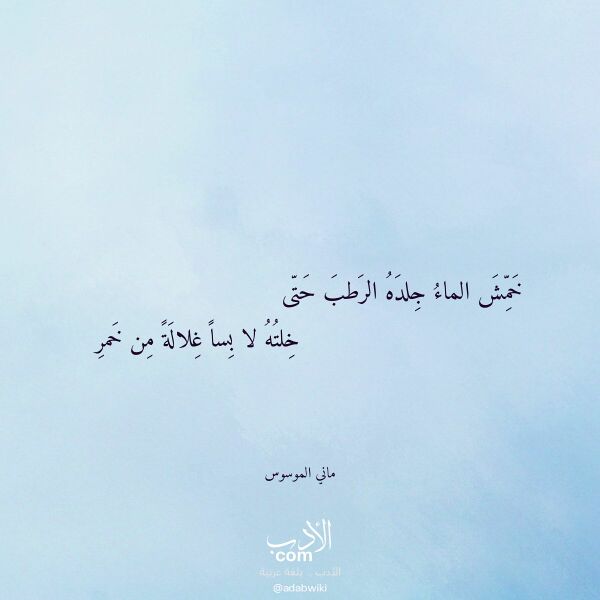 خَمَّشَ الماءُ جِلدَهُ الرَطبَ حَتّى
خِلتُهُ لا بِساً غِلالَةً مِن خَمرِ
ماني الموسوس
الأدب
com
الأدب .. بلغة عربية
@adabwiki